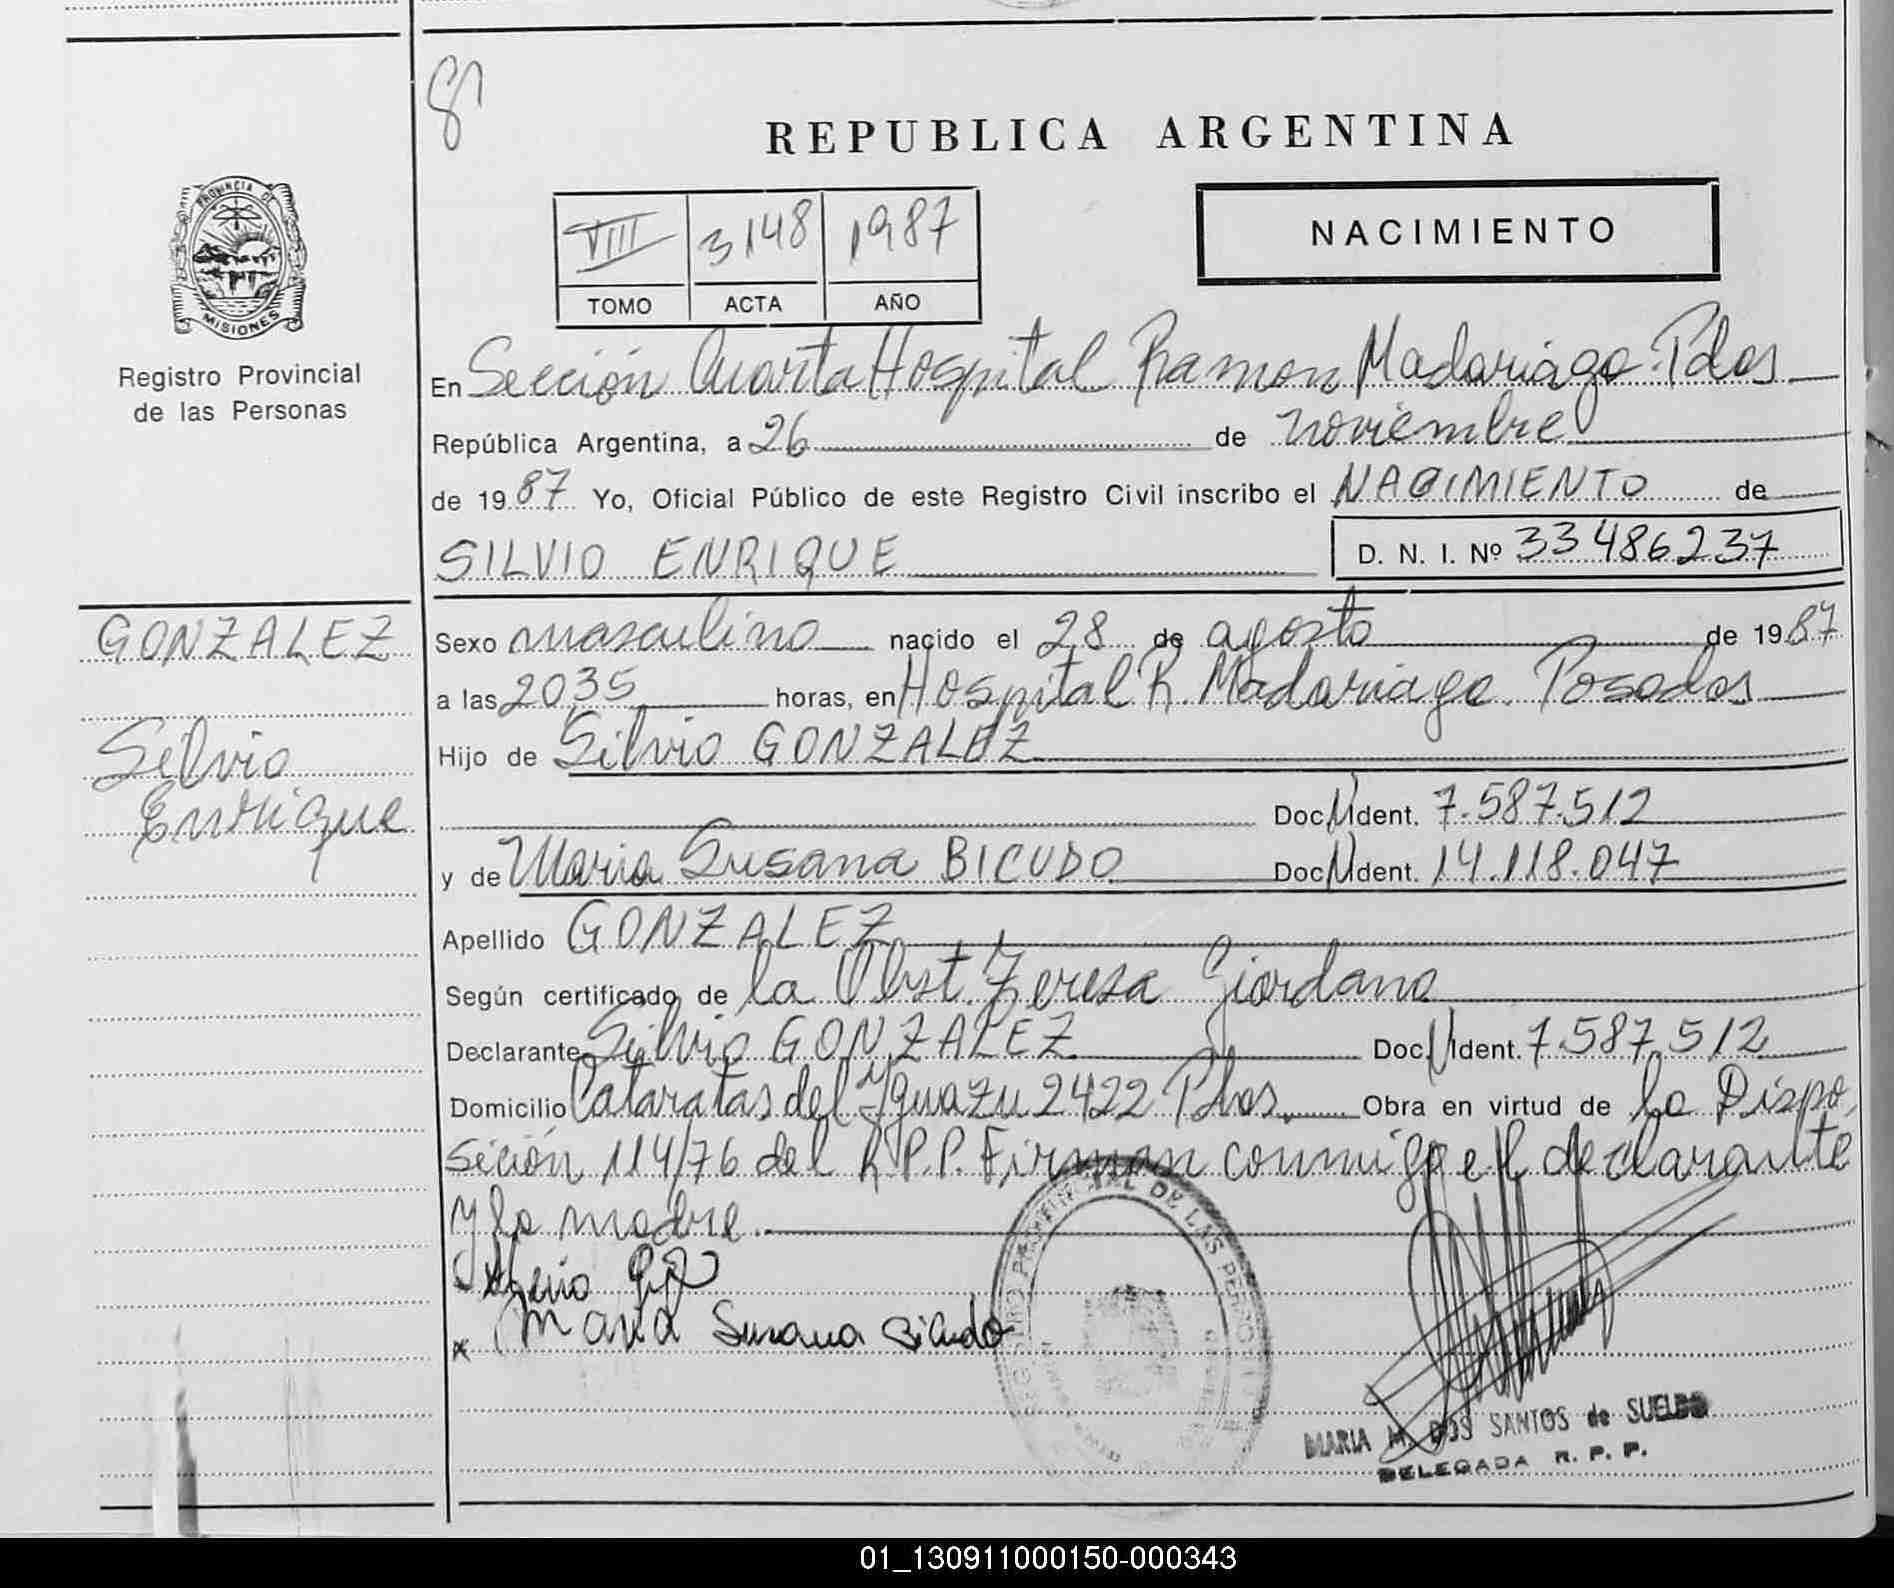 8
REPUBLICA ARGENTINA
PROVINCIA DE
MISIONES
Registro Provincial
de las Personas
VIII 3148 1987
TOMO ACTA AÑO
NACIMIENTO
En Sección Cuarta Hospital Ramon Madariaga. Pdas
República Argentina, a 26 de noviembre
de 1987 Yo, Oficial Público de este Registro Civil inscribo el NACIMIENTO de
SILVIO ENRIQUE D. N. I. Nº 33486237
GONZALEZ
Silvio
Enrique
Sexo masculino nacido el 28 de agosto de 1987
a las 20,35 horas, en Hospital R. Madariaga. Posadas
Hijo de Silvio GONZALEZ
Doc. N Ident. 7.587.512
y de Maria Susana BICUDO Doc. N Ident. 14.118.047
Apellido GONZALEZ
Según certificado de la Obst. Teresa Giordano
Declarante Silvio GONZALEZ Doc. N Ident. 7.587.512
Domicilio Cataratas del Yguazu 2422 Pdas. Obra en virtud de la Dispo
sición 114/76 del R.P.P. Firman conmigo el declarante
y la madre.
x Maria Susana Bicudo
REGISTRO PROVINCIAL DE LAS PERSONAS
MARIA M. DOS SANTOS de SUELDO
DELEGADA R. P. P.
01_130911000150-000343